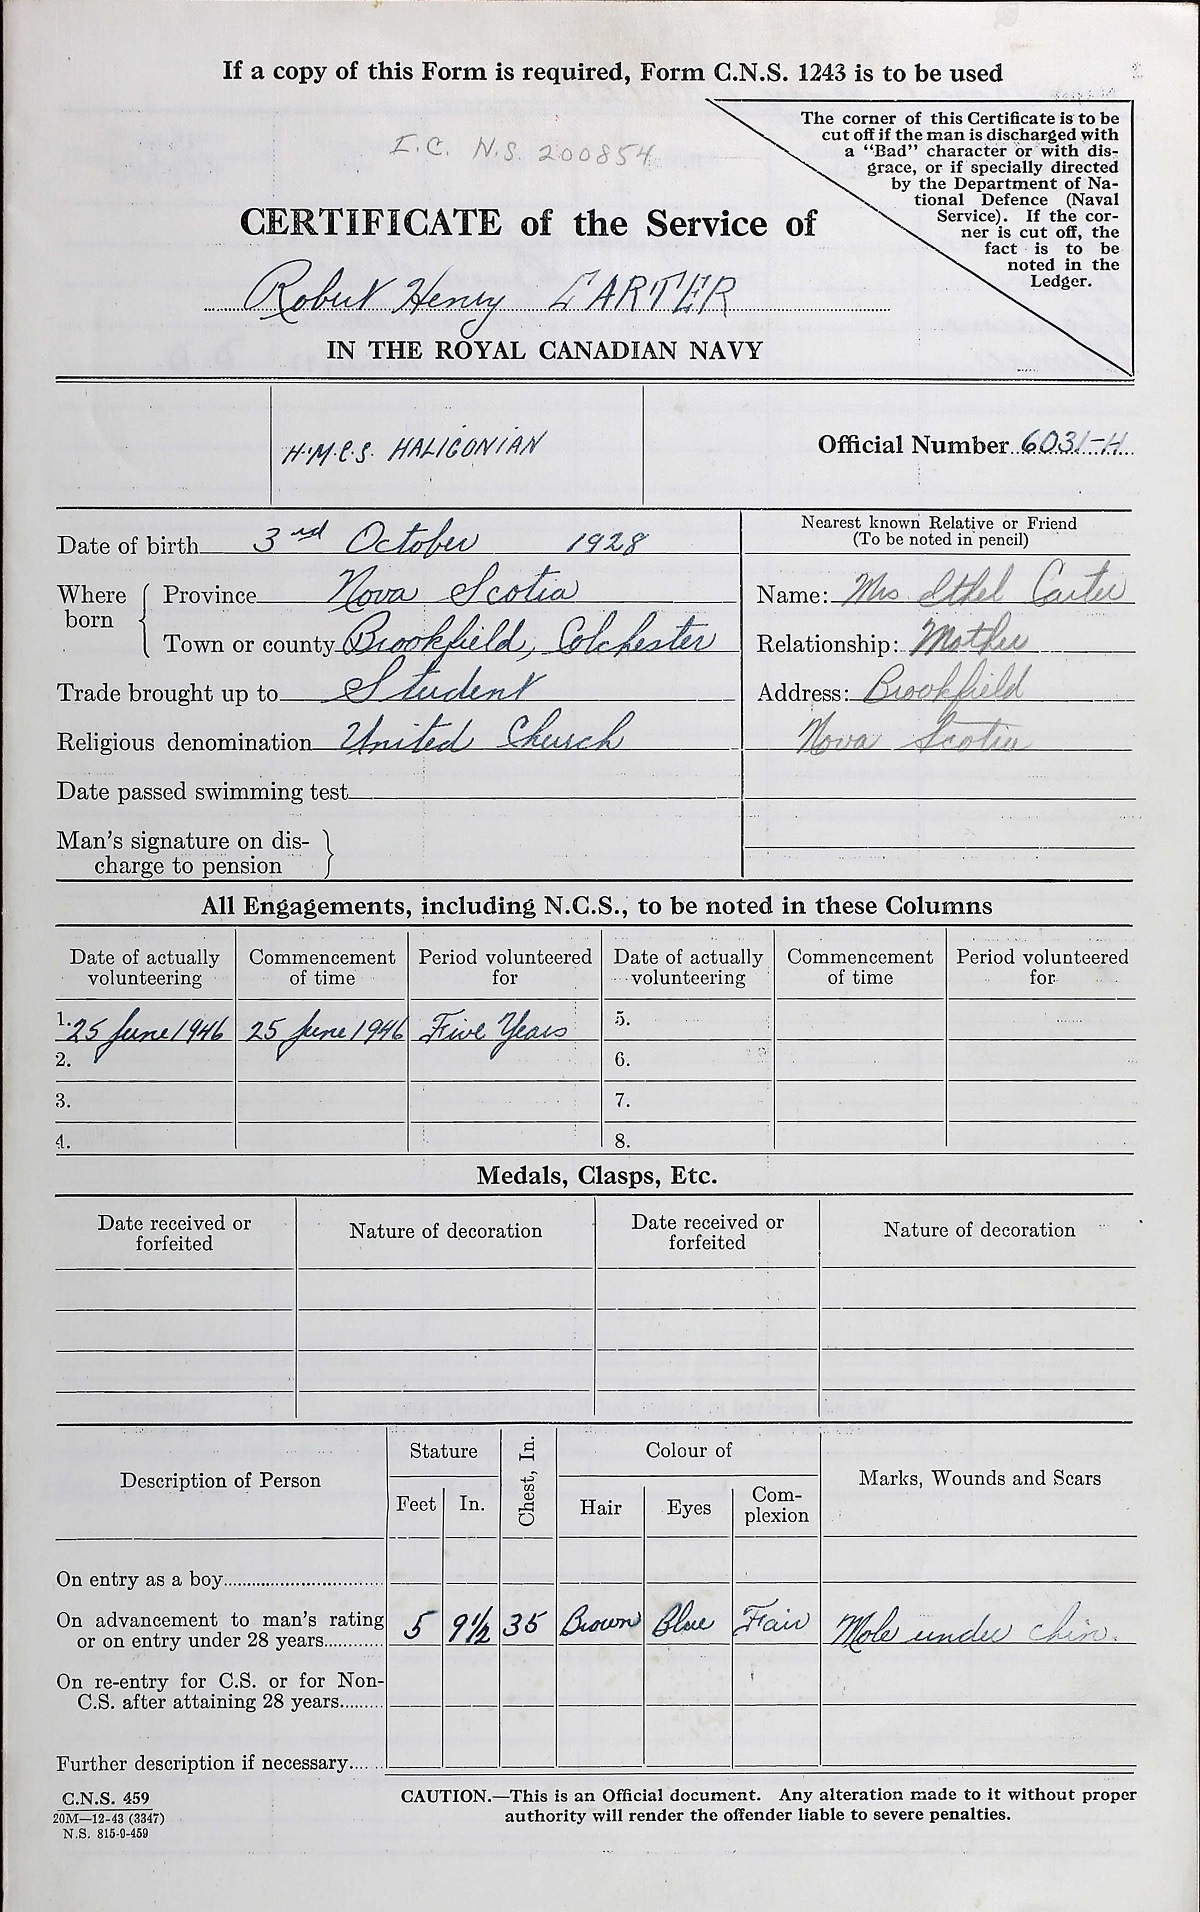 If a copy of this Form is required, Form C.N.S. 1243 is to be used
I.C. N.S. 200854
The corner of this Certificate is to be
cut off if the man is discharged with
a "Bad" character or with dis-
grace, or if specially directed
by the Department of Na-
tional Defence (Naval
Service). If the cor-
ner is cut off, the
fact is to be
noted in the
Ledger.
CERTIFICATE of the Service of
Robert Henry CARTER
IN THE ROYAL CANADIAN NAVY
H.M.C.S. HALIGONIAN
Official Number 6031-H
Date of birth 3rd October 1928
Where born
Province Nova Scotia
Town or county Brookfield, Colchester
Trade brought up to Student
Religious denomination United Church
Date passed swimming test
Man's signature on dis-
charge to pension
Nearest known Relative or Friend
(To be noted in pencil)
Name: Mrs Ethel Carter
Relationship: Mother
Address: Brookfield
Nova Scotia
All Engagements, including N.C.S., to be noted in these Columns
Date of actually volunteering Commencement of time Period volunteered for Date of actually volunteering Commencement of time Period volunteered for
1. 25 June 1946 25 June 1946 Five Years 5.
2. 6.
3. 7.
4. 8.
Medals, Clasps, Etc.
Date received or forfeited Nature of decoration Date received or forfeited Nature of decoration
Description of Person Stature Feet In. Chest, In. Colour of Hair Eyes Com-plexion Marks, Wounds and Scars
On entry as a boy
On advancement to man's rating
or on entry under 28 years 5 9½ 35 Brown Blue Fair Mole under chin.
On re-entry for C.S. or for Non-
C.S. after attaining 28 years
Further description if necessary
C.N.S. 459
20M—12-43 (3347)
N.S. 815-9-459
CAUTION.—This is an Official document. Any alteration made to it without proper
authority will render the offender liable to severe penalties.